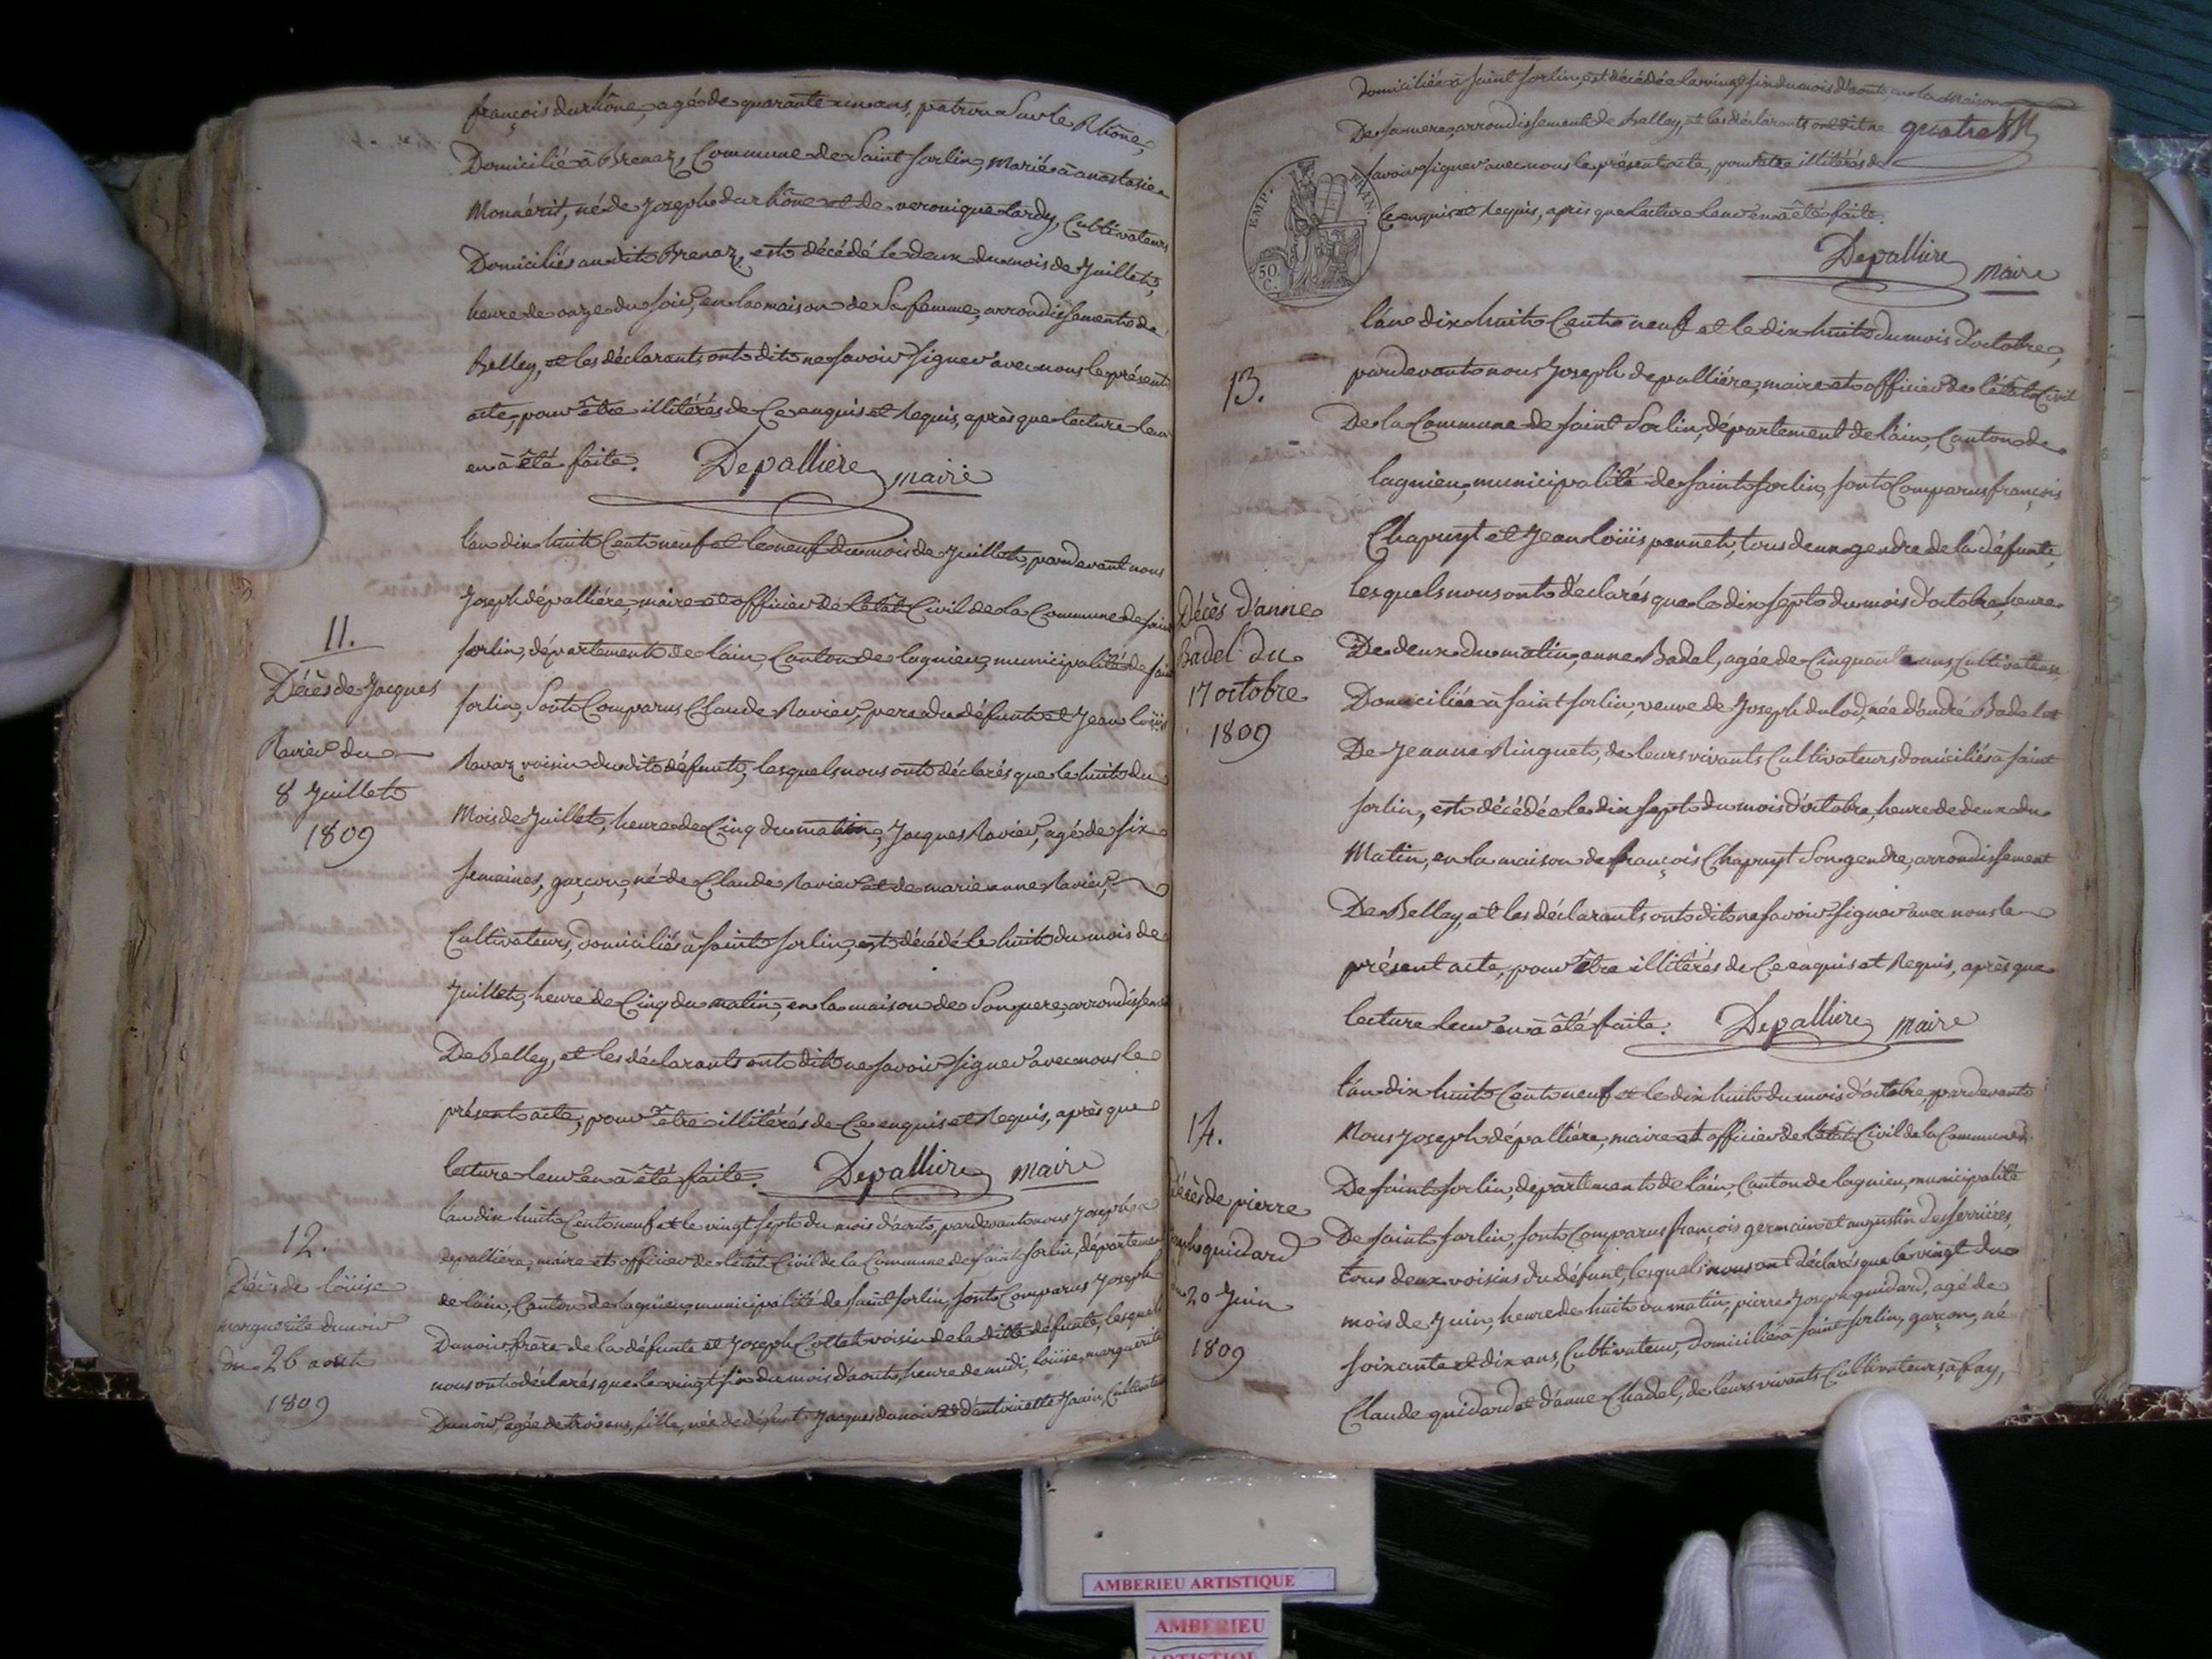 françois durhône, agé de quarante un ans, patron sur le Rhône,
Domicilié à Brenaz, Commune de Saint Sorlin, Marié à anastasie
Monnérit, né de Joseph durhône et de veronique tardy, Cultivateurs
Domiciliés audit Brenaz, est décédé le deux du mois de Juillet,
heure de onze du soir, en la maison de Sa femme, arrondissement de
Belley, et les déclarants ont dit ne savoir signer avec nous le présent
acte, pour être illitérés de Ce enquis et Requis, après que lecture leur
en à été faite. Depalliere maire
11.
Décès de Jacques
Ravier du
8 Juillet
1809
l'an dix huit Cent neuf et le neuf du mois de Juillet, pardevant nous
Joseph dépalliére, maire et officier de l'état Civil de la Commune de saint
sorlin, département de l'ain, Canton de lagnieu, municipalité de saint
sorlin, Sont Comparus Claude Ravier, pere du défunt et Jean loüis
Ravaz voisin dudit défunt, lesquels nous ont déclarés que le huit du
Mois de Juillet, heure de Cinq du matin, Jacques Ravier, agé de six
semaines, garçon, né de Claude Ravier et de marie anne Ravier,
Cultivateurs, domiciliés à saint sorlin, est décédé le huit du mois de
Juillet, heure de Cinq du matin, en la maison de Son pere, arrondissement
De Belley, et les déclarants ont dit ne savoir signer avec nous le
présent acte, pour être illitérés de Ce enquis et Requis, après que
lecture leur en à été faite. Depalliere maire
12.
Décès de loüise
marguerite dunoir
du 26 août
1809
l'an dix huit Cent neuf et le vingt sept du mois d'août, pardevant nous Joseph
depalliére, maire et officier de l'état Civil de la Commune de saint sorlin, département
de l'ain, Canton de lagnieu, municipalité de saint sorlin, sont Comparus Joseph
Dunoir, frère de la défunte et Joseph Collet voisin de la ditte défunte, lesquels
nous ont déclarés que le vingt six du mois d'août, heure de midi, loüise, marguerite
Dunoir, agée de trois ans, fille, née de défunt Jacques dunoir et d'antoinette Janin, Cultivateurs
Domiciliée à saint sorlin, est décédée le vingt six du mois d'août, en la maison
De sa mere, arrondissement de Belley, et les déclarants ont dit ne quatre
savoir signer avec nous le présent acte, pour être illitérés de
Ce enquis et Requis, après que lecture leur en à été faite.
EMP. FRAN.
50.
C.
Depalliere maire
13.
Décès d'anne
Badel du
17 octobre
1809
l'an dix huit Cent neuf et le dix huit du mois d'octobre,
pardevant nous Joseph depalliére, maire et officier de l'état Civil
De la Commune de saint Sorlin, département de l'ain, Canton de
lagnieu, municipalité de saint sorlin, sont Comparus françois
Chapuyt et Jean loüis ponnet, tous deux gendre de la défunte,
lesquels nous ont déclarés que le dix sept du mois d'octobre, heure
De deux du matin, anne Badel, agée de Cinquante ans, Cultivatrice,
Domiciliée à saint sorlin, veuve de Joseph dulod, née d'andré Badel et
De Jeanne Ringuet, de leurs vivants Cultivateurs domiciliés à saint
sorlin, est décédée le dix sept du mois d'octobre, heure de deux du
Matin, en la maison de françois Chapuyt Son gendre, arrondissement
De Belley, et les déclarants ont dit ne savoir signer avec nous le
présent acte, pour être illitérés de Ce enquis et Requis, après que
lecture leur en à été faite. Depalliere maire
14.
décès de pierre
joseph guidard
du 20 Juin
1809
l'an dix huit Cent neuf et le dix huit du mois d'octobre, pardevant
Nous Joseph dépalliére, maire et officier de l'état Civil de la Commune
De saint sorlin, departement de l'ain, Canton de lagnieu, municipalité
De saint sorlin, sont Comparus françois germain et augustin Desferrieres,
tous deux voisins du défunt, lesquels nous ont déclarés que le vingt du
mois de Juin, heure de huit du matin, pierre Joseph guidard, agé de
soixante et dix ans, Cultivateur, domicilié à saint sorlin, garçon, né
Claude guidard et d'anne Chadel, de leurs vivants Cultivateurs, à fay,
AMBERIEU ARTISTIQUE
AMBERIEU
ARTISTIQUE